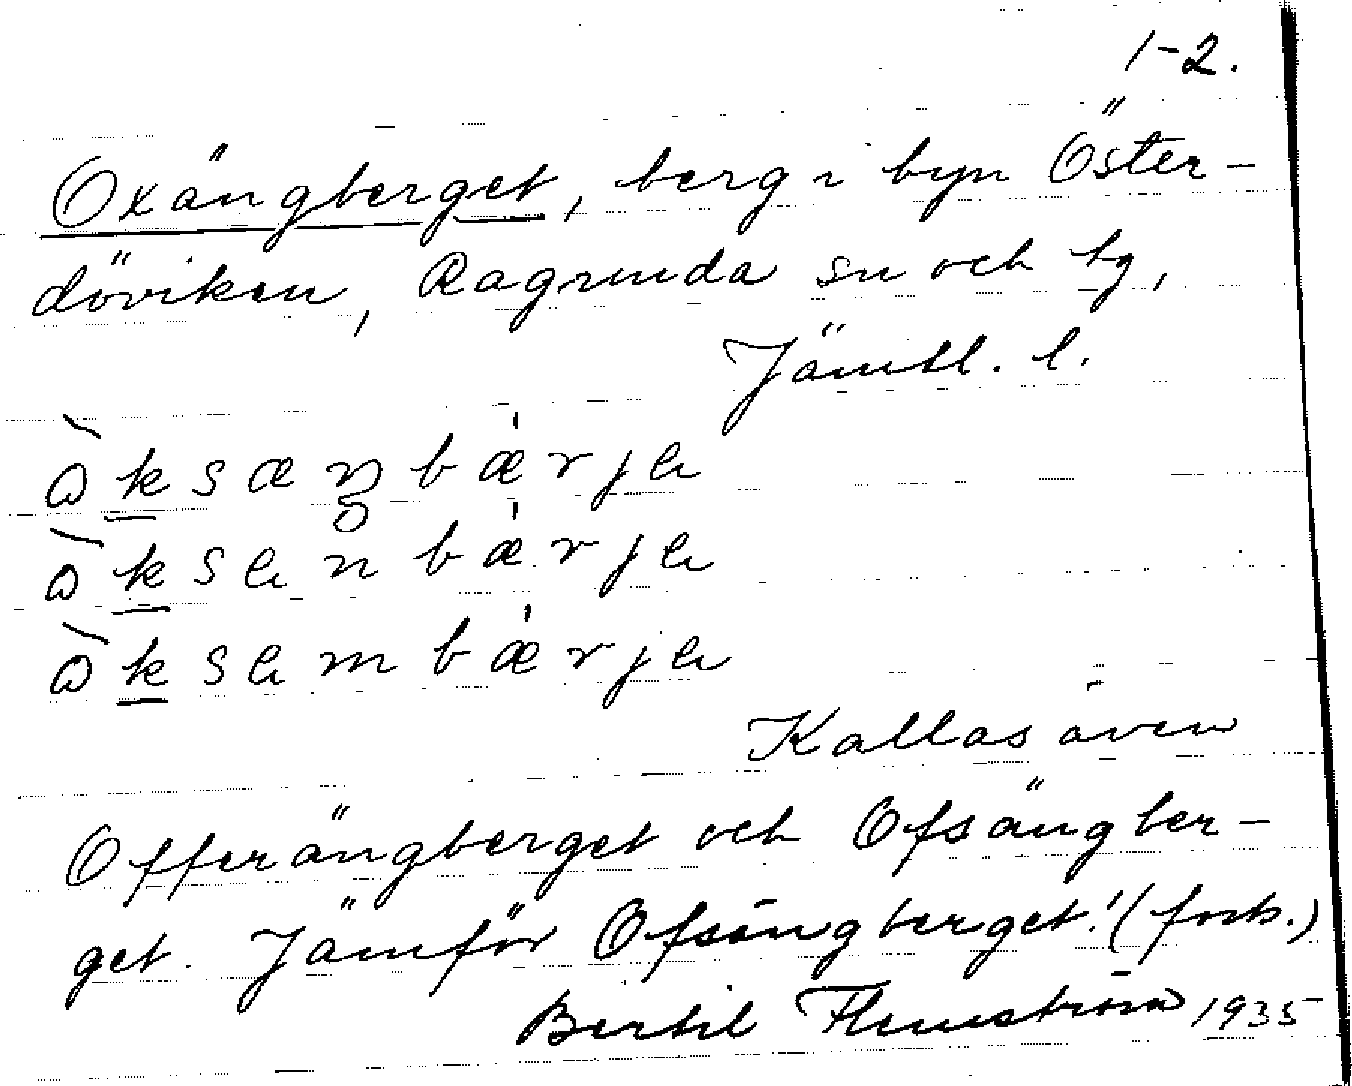 1-2.
Oxängberget, berg i byn Öster-
döviken, Ragunda sn och tg,
Jämtl. l.
ὼksæŋbǽrjə
ὼksənbǽrjə
ὼksəmbǽrjə
Kallas även
Offerängberget och Ofsängber-
get. Jämför Ofsängberget! (forts.)
Bertil Flemström 1935